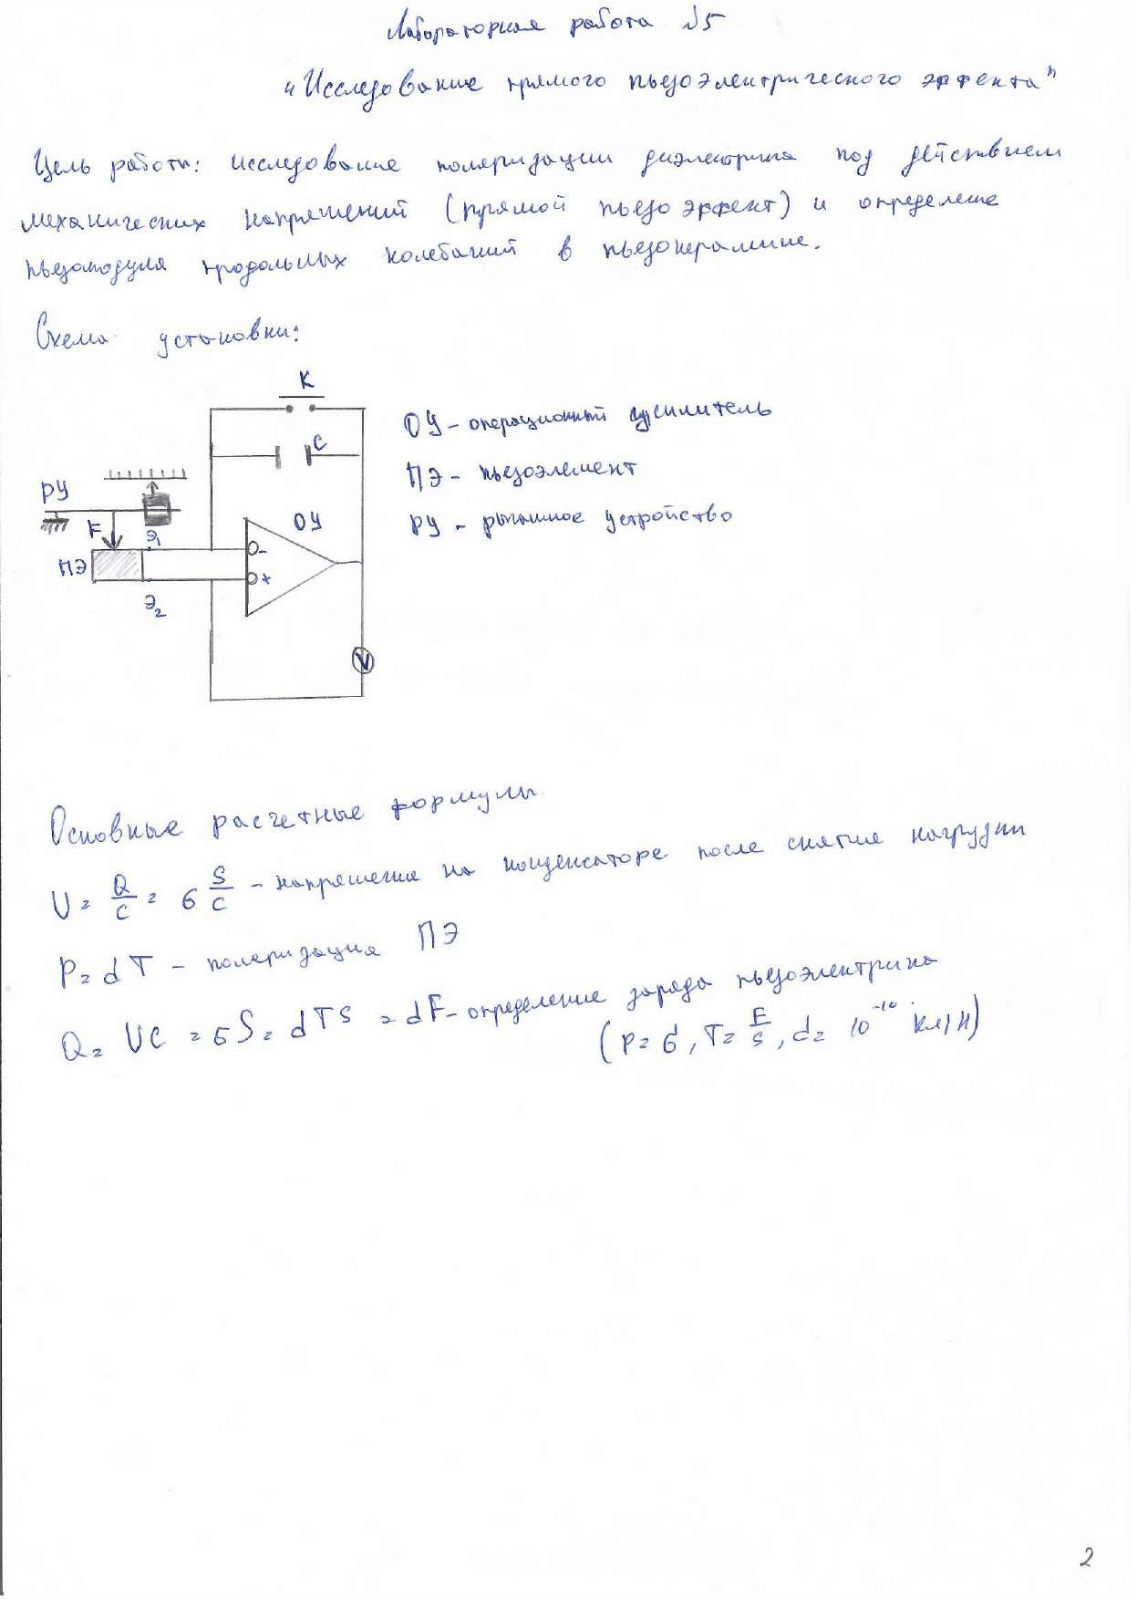 Лабораторная работа №5
"Исследование прямого пьезоэлектрического эффекта"
Цель работы: исследование поляризации диэлектрика под действием
механических напряжений (прямой пьезоэффект) и определение
пьезомодуля продольных колебаний в пьезокерамике.
Схема установки:
K
C
ОУ - операционный усилитель
ПЭ - пьезоэлемент
РУ - рычажное устройство
РУ
F
Э₁
ОУ
-
ПЭ
+
Э₂
V
Основные расчетные формулы
U = Q/C = б S/C - напряжение на конденсаторе после снятия нагрузки
P = dT - поляризация ПЭ
Q = UC = бS = dTS = dF - определение заряда пьезоэлектрика
(P = б, T = F/S, d = 10⁻¹⁰ Кл/Н)
2